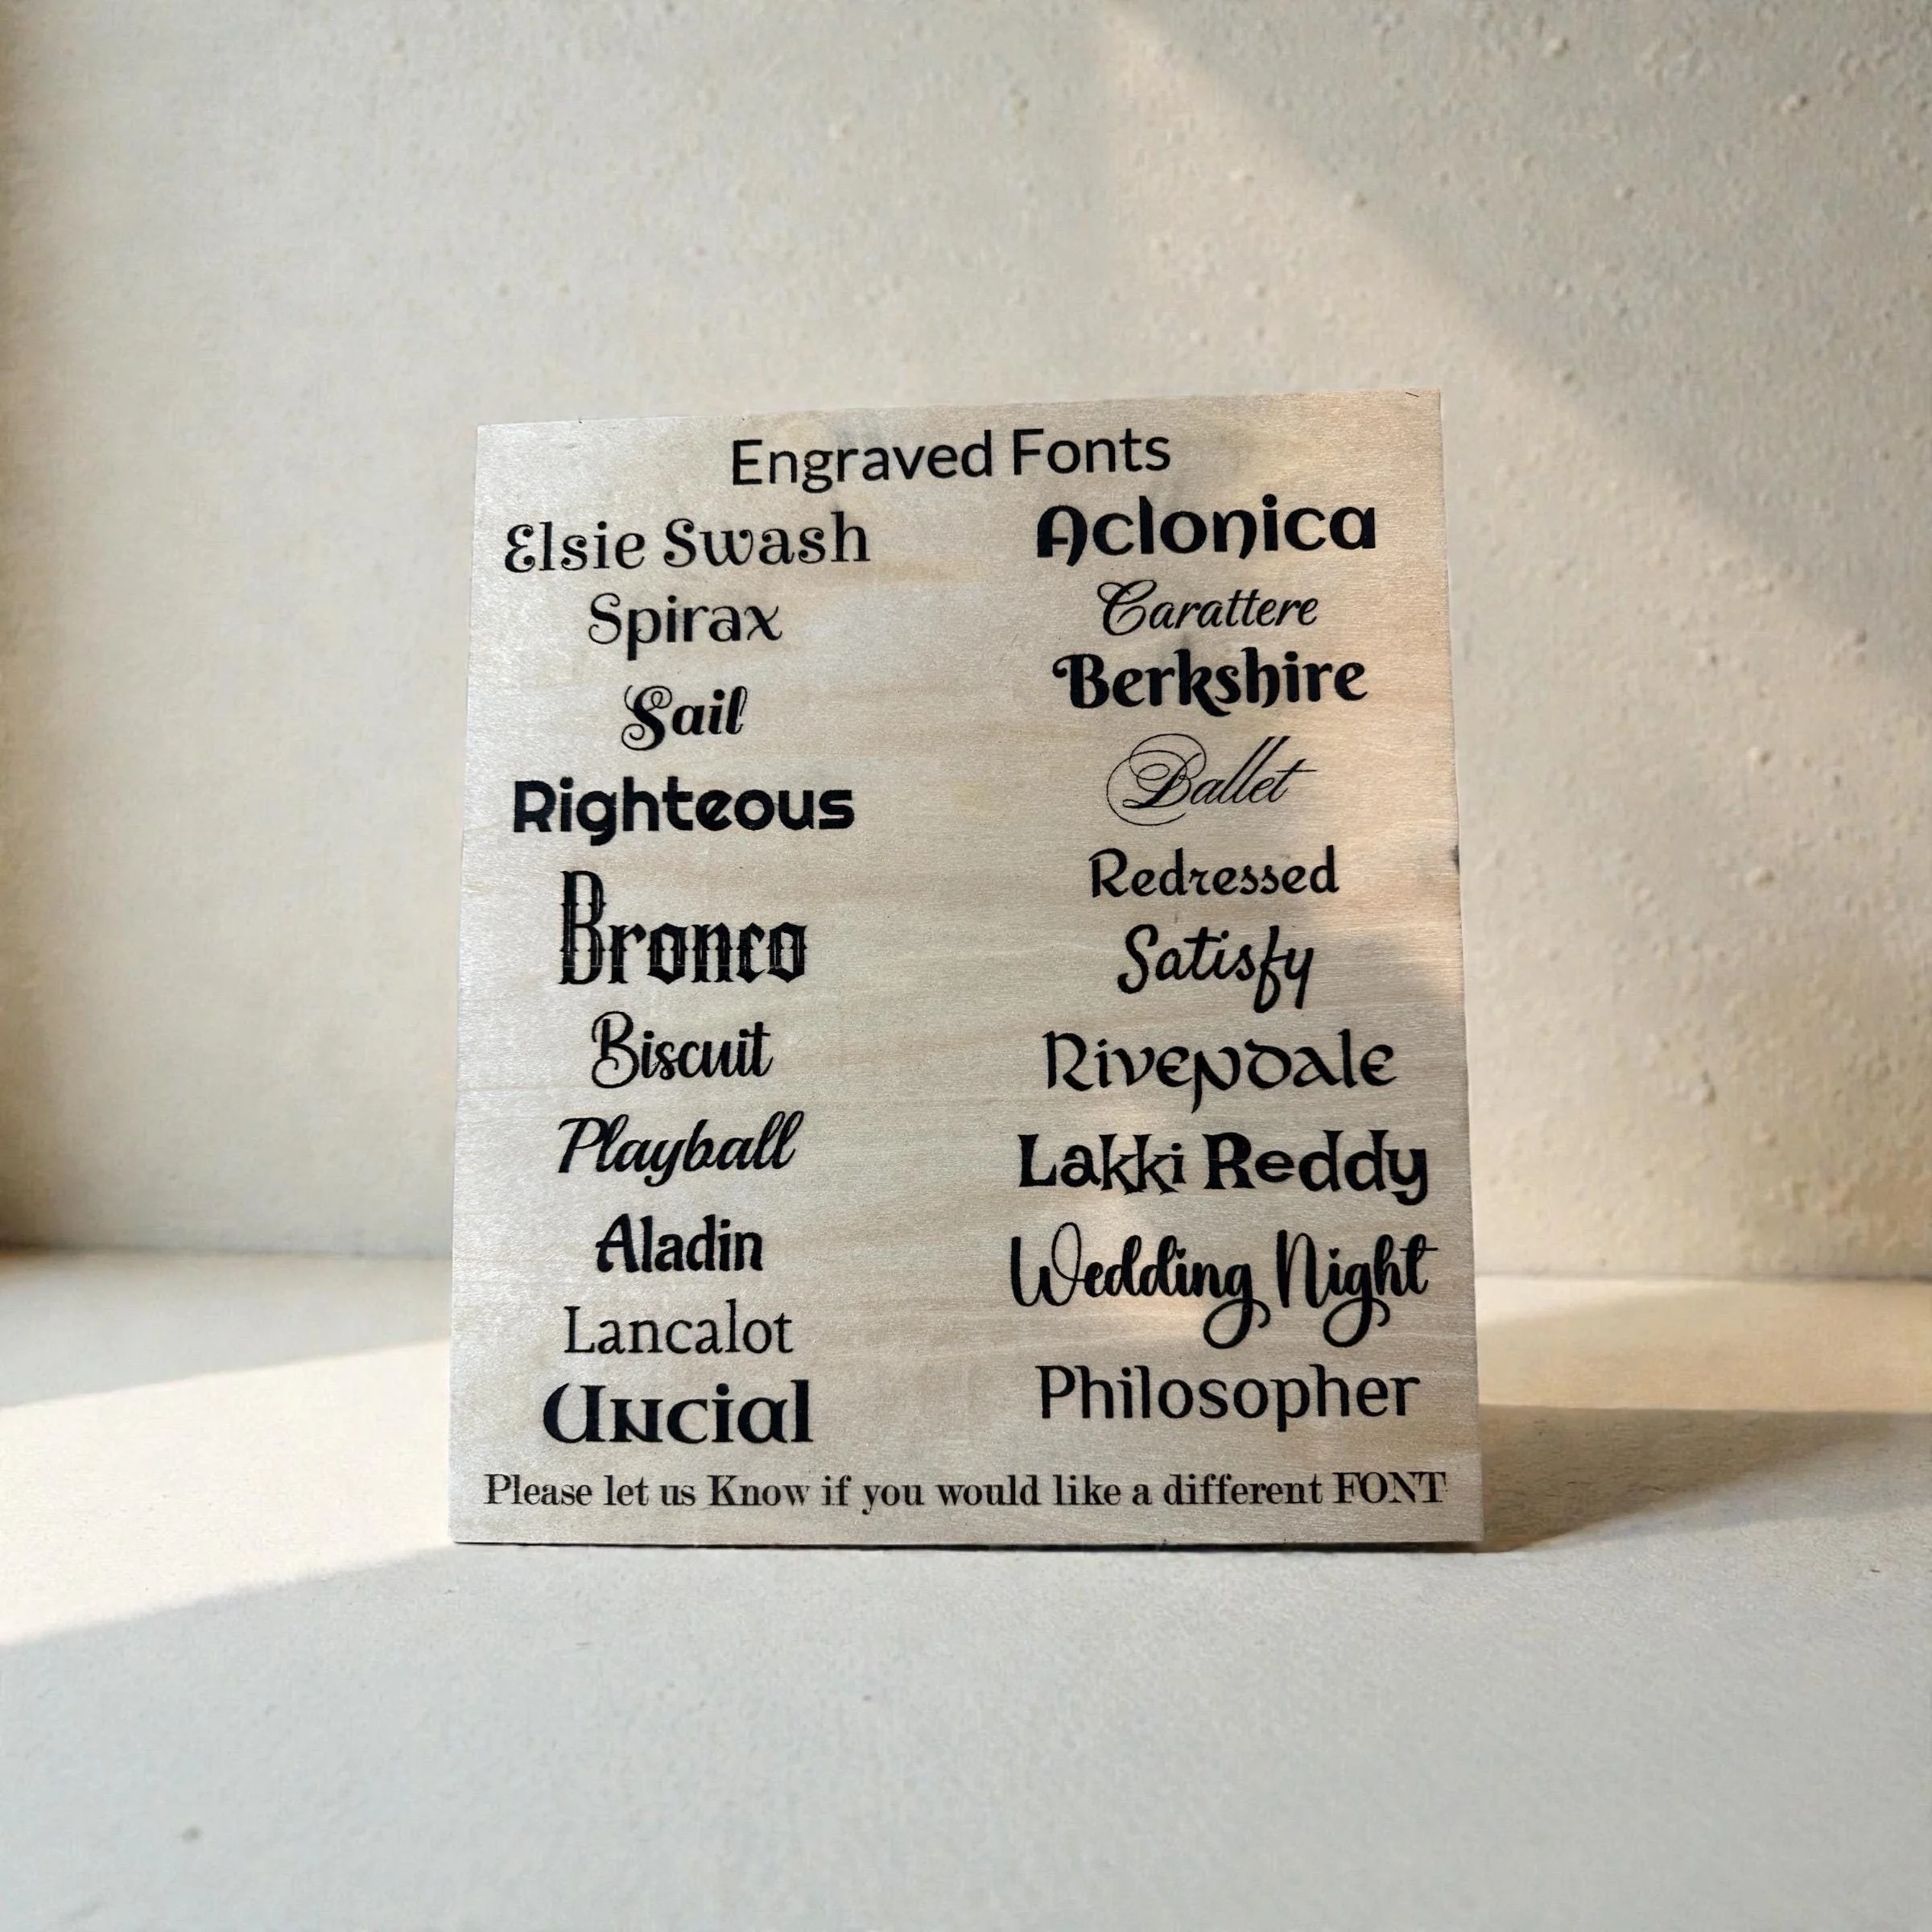 Engraved Fonts
Elsie Swash
Spirax
Sail
Righteous
Bronco
Biscuit
Playball
Aladin
Lancalot
Uncial
Aclonica
Carattere
Berkshire
Ballet
Redressed
Satisfy
Rivendale
Lakki Reddy
Wedding Night
Philosopher
Please let us Know if you would like a different FONT